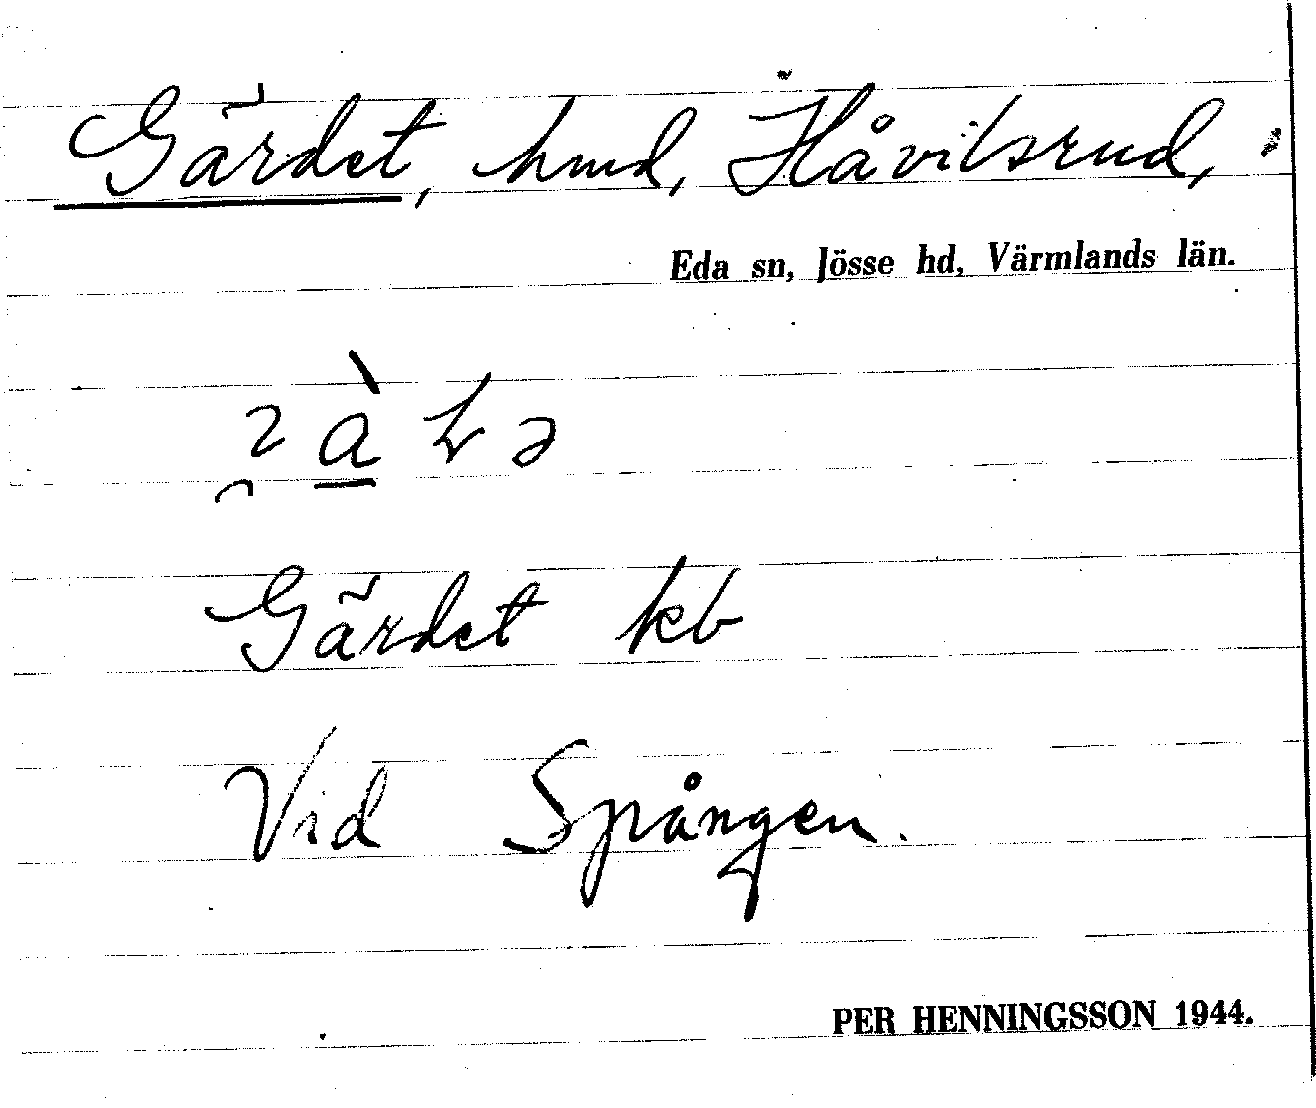 Gärdet, hmd, Håvilsrud,
Eda sn, Jösse hd, Värmlands län.
Gärdet kb
Vid Spången.
PER HENNINGSSON 1944.